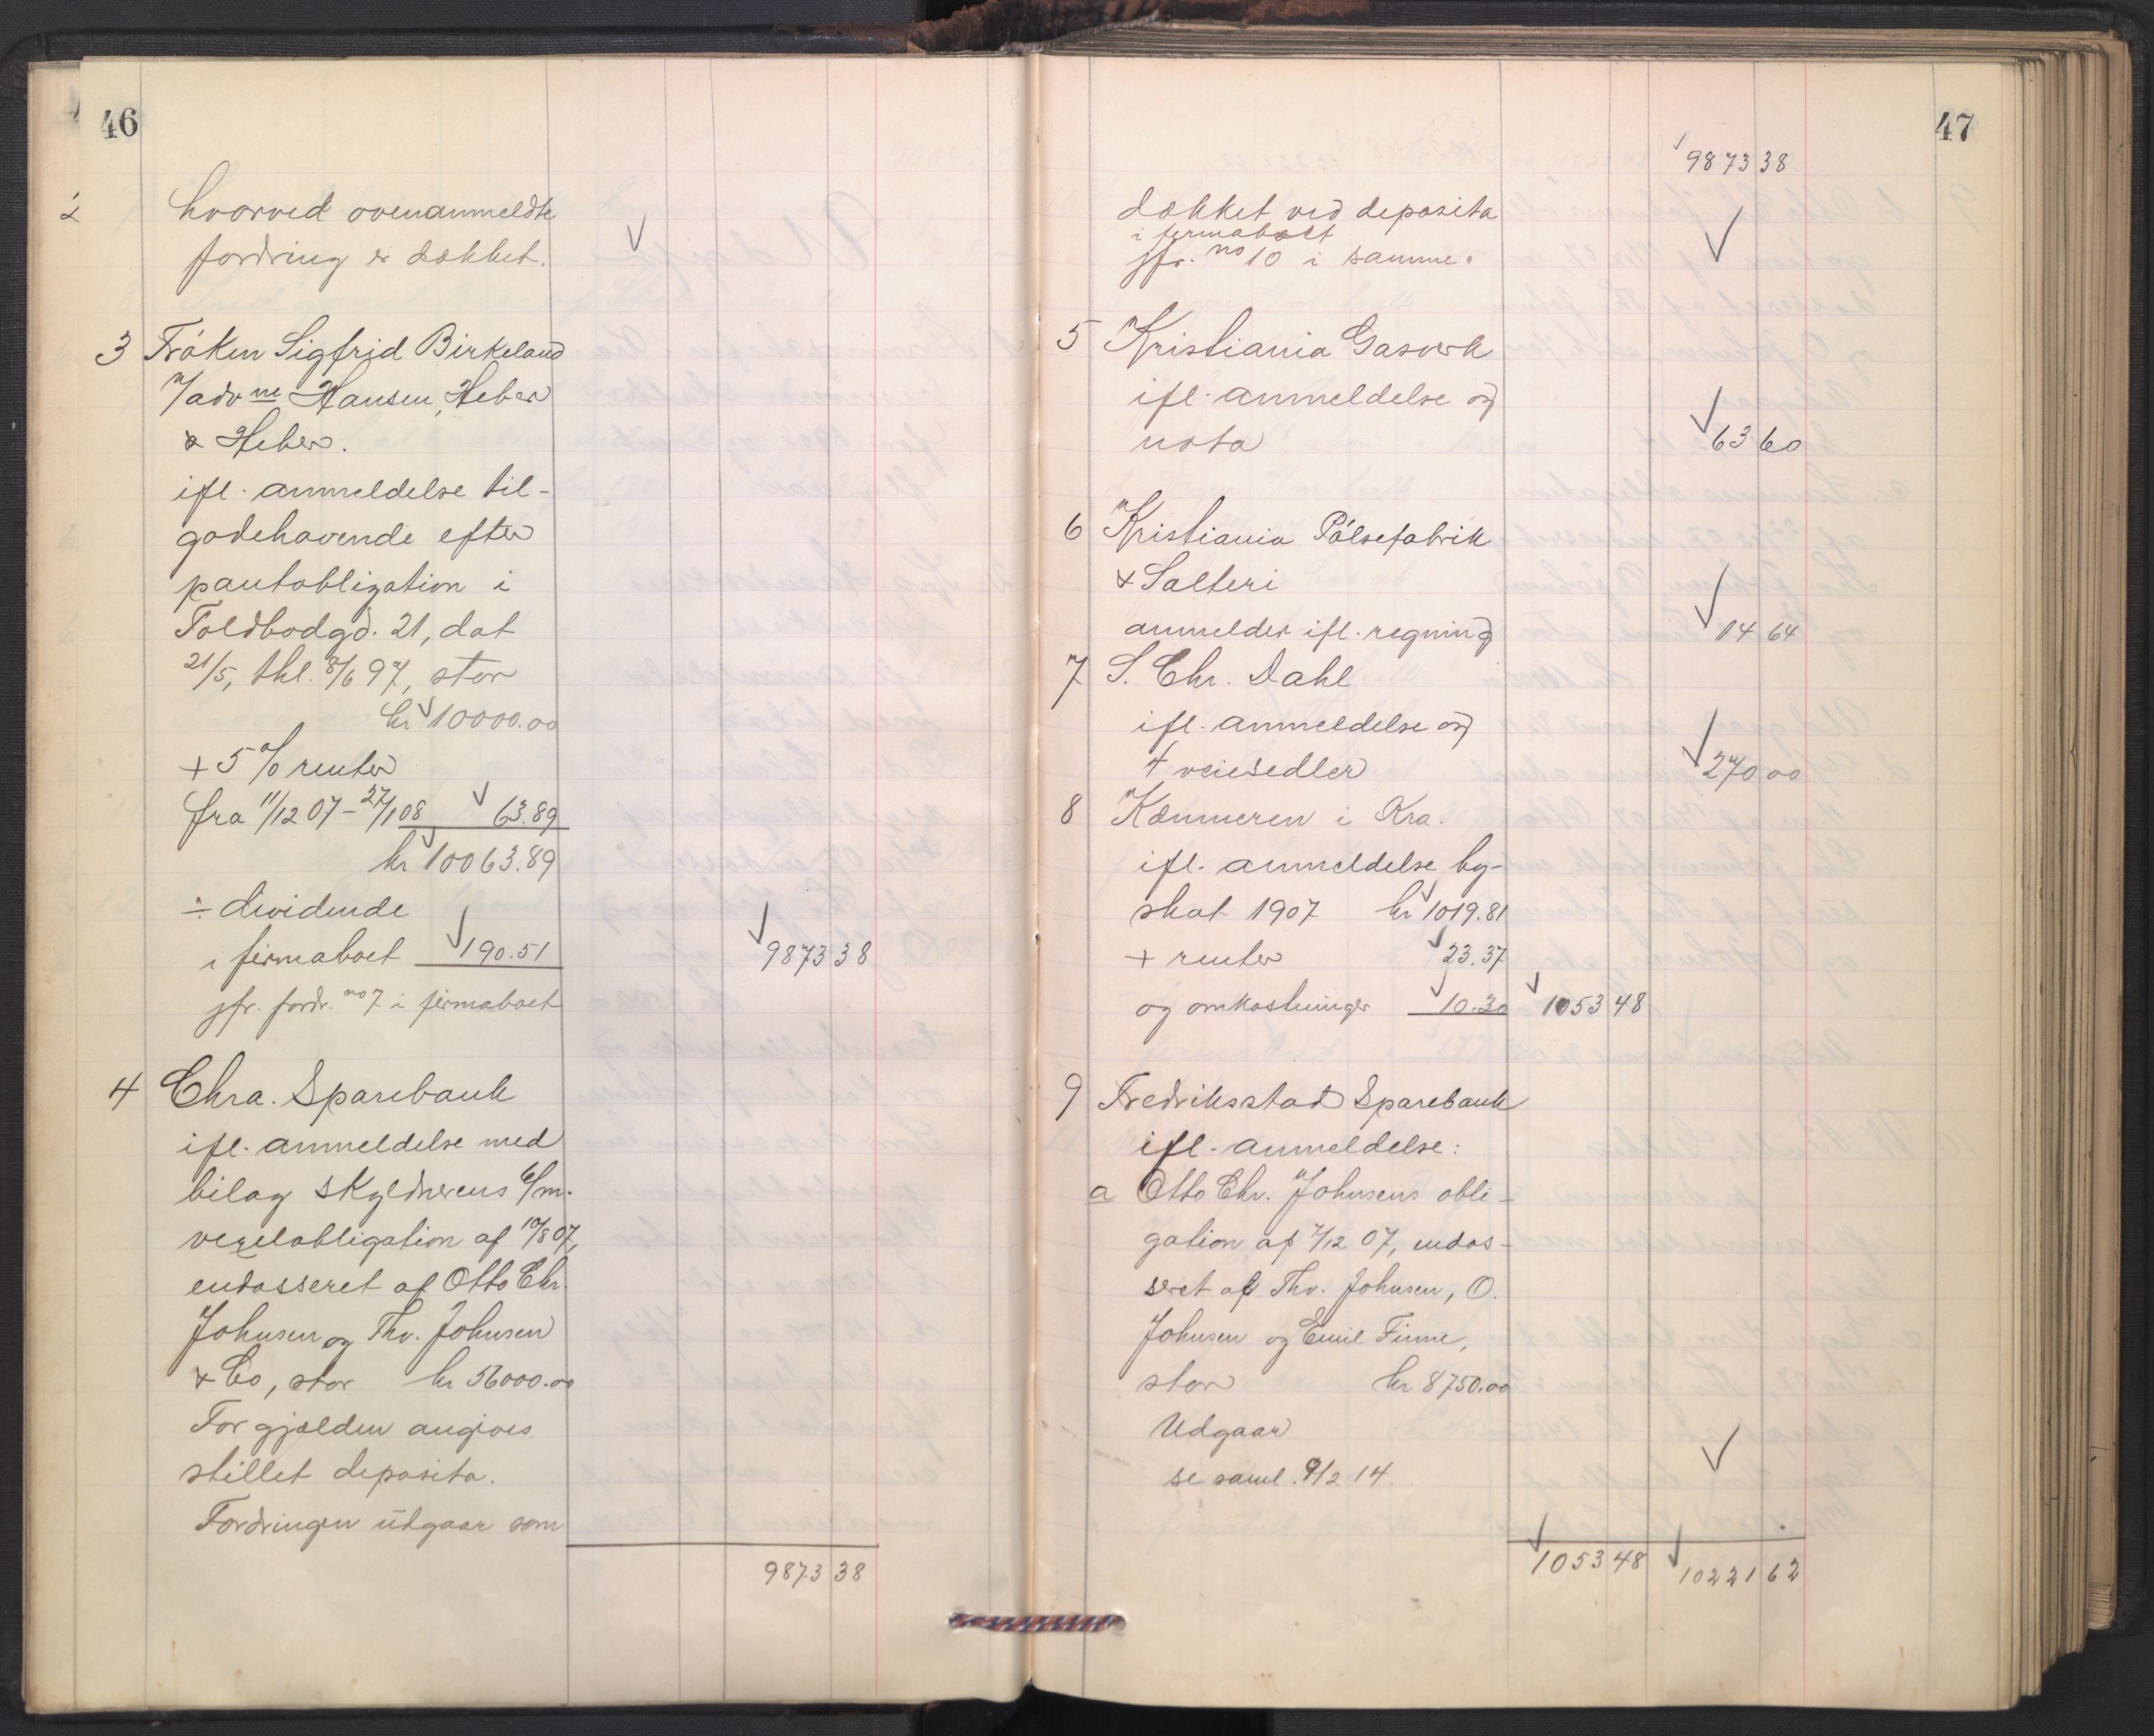 46
2 hvorved ovenanmeldte
fordring er dækket.
3 Frøken Sigfrid Birkeland
v/adv ne Hansen, Heber
& Heber.
ifl. anmeldelse til-
godehavende efter
pantobligation i
Toldbodgd. 21, dat
21/5, thl. 8/6 97, stor
kr 10000.00
+ 5 % renter
fra 11/12 07 – 27/1 08 63.89
kr 10063.89
÷ dividende
i firmaboet 190.51 9873 38
jfr. fordr. no 7 i firmaboet
4 Chra. Sparebank
ifl. anmeldelse med
bilag skyldnerens 6/m.
vexelobligation af 10/8 07,
endosseret af Otto Chr.
Johnsen og Thv. Johnsen
& Co, stor kr 56000.00
For gjælden angives
stillet deposita.
Fordringen udgaar som
9873 38
47
9873 38
dækket ved deposita
i firmaboet
jfr. no 10 i samme.
5 Kristiania Gasverk
ifl. anmeldelse og
nota 63 60
6 Kristiania Pølsefabrik
& Salteri
anmeldes ifl. regning 14 64
7 S. Chr. Dahl
ifl. anmeldelse og
4 veiesedler 270 00
8 Kæmneren i Kra.
ifl. anmeldelse by-
skat 1907 kr 1019.81
+ renter 23.37
og omkostninger 10.30 1053 48
9 Fredriksstad Sparebank
ifl. anmeldelse:
a Otto Chr. Johnsens obli-
gation af 7/12 07, endos-
seret af Thv. Johnsen, O.
Johnsen og Emil Finne,
stor kr 8750.00
Udgaar
se saml. 9/2 14.
1053 48 10221 62